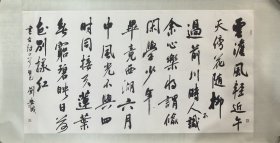 雲淡風輕近午
天傍花隨柳
過前川時人不識
余心樂將謂偷
閑學少年
畢竟西湖六月
中風光不與四
時同接天蓮葉
無窮碧映日荷
花別樣紅